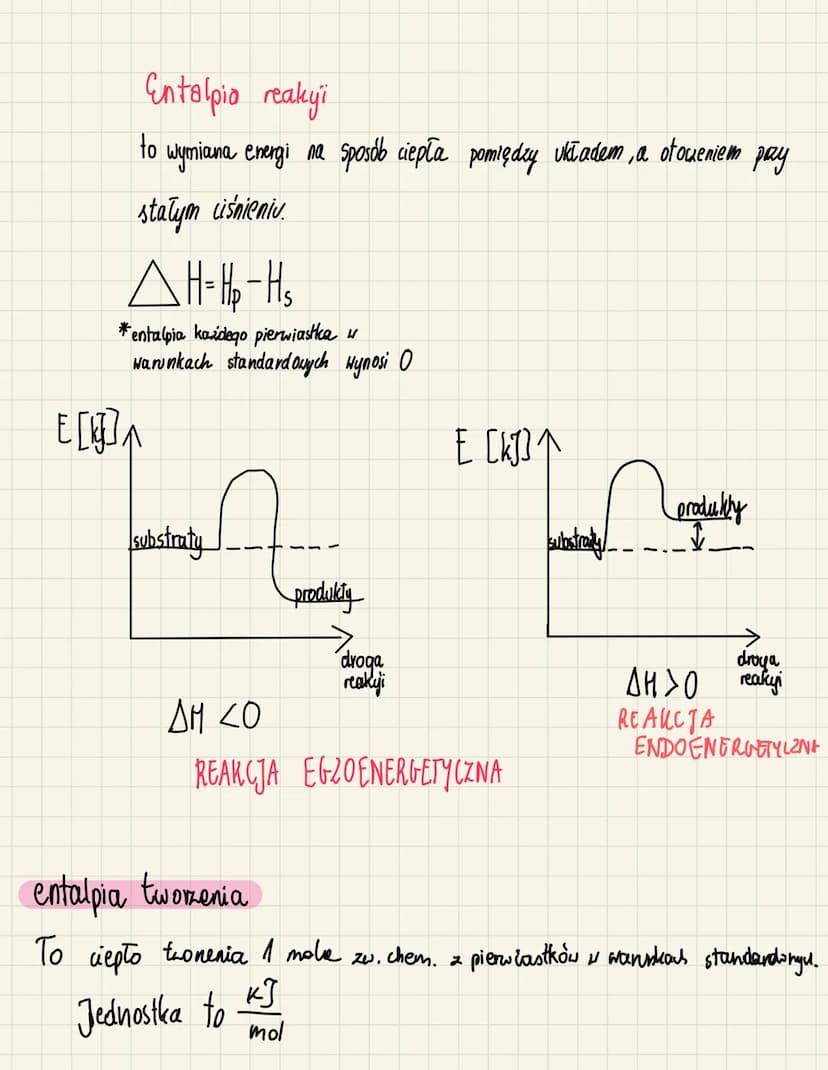 Entalpia reakcji
to wymiana energi na sposób ciepła pomiędzy układem, a otoczeniem przy
stałym ciśnieniu.
△H=Hp-Hs
*entalpia każdego pierwiastka w
warunkach standardowych wynosi 0
E [kJ]
substraty
produkty
droga
reakcji
ΔH <0
REAKCJA EGZOENERGETYCZNA
E [kJ]
produkty
substraty
droga
reakcji
ΔH >0
REAKCJA
ENDOENERGETYCZNA
entalpia tworzenia
To ciepło tworzenia 1 mola zw. chem. z pierwiastków w warunkach standardowych.
Jednostka to kJ
mol